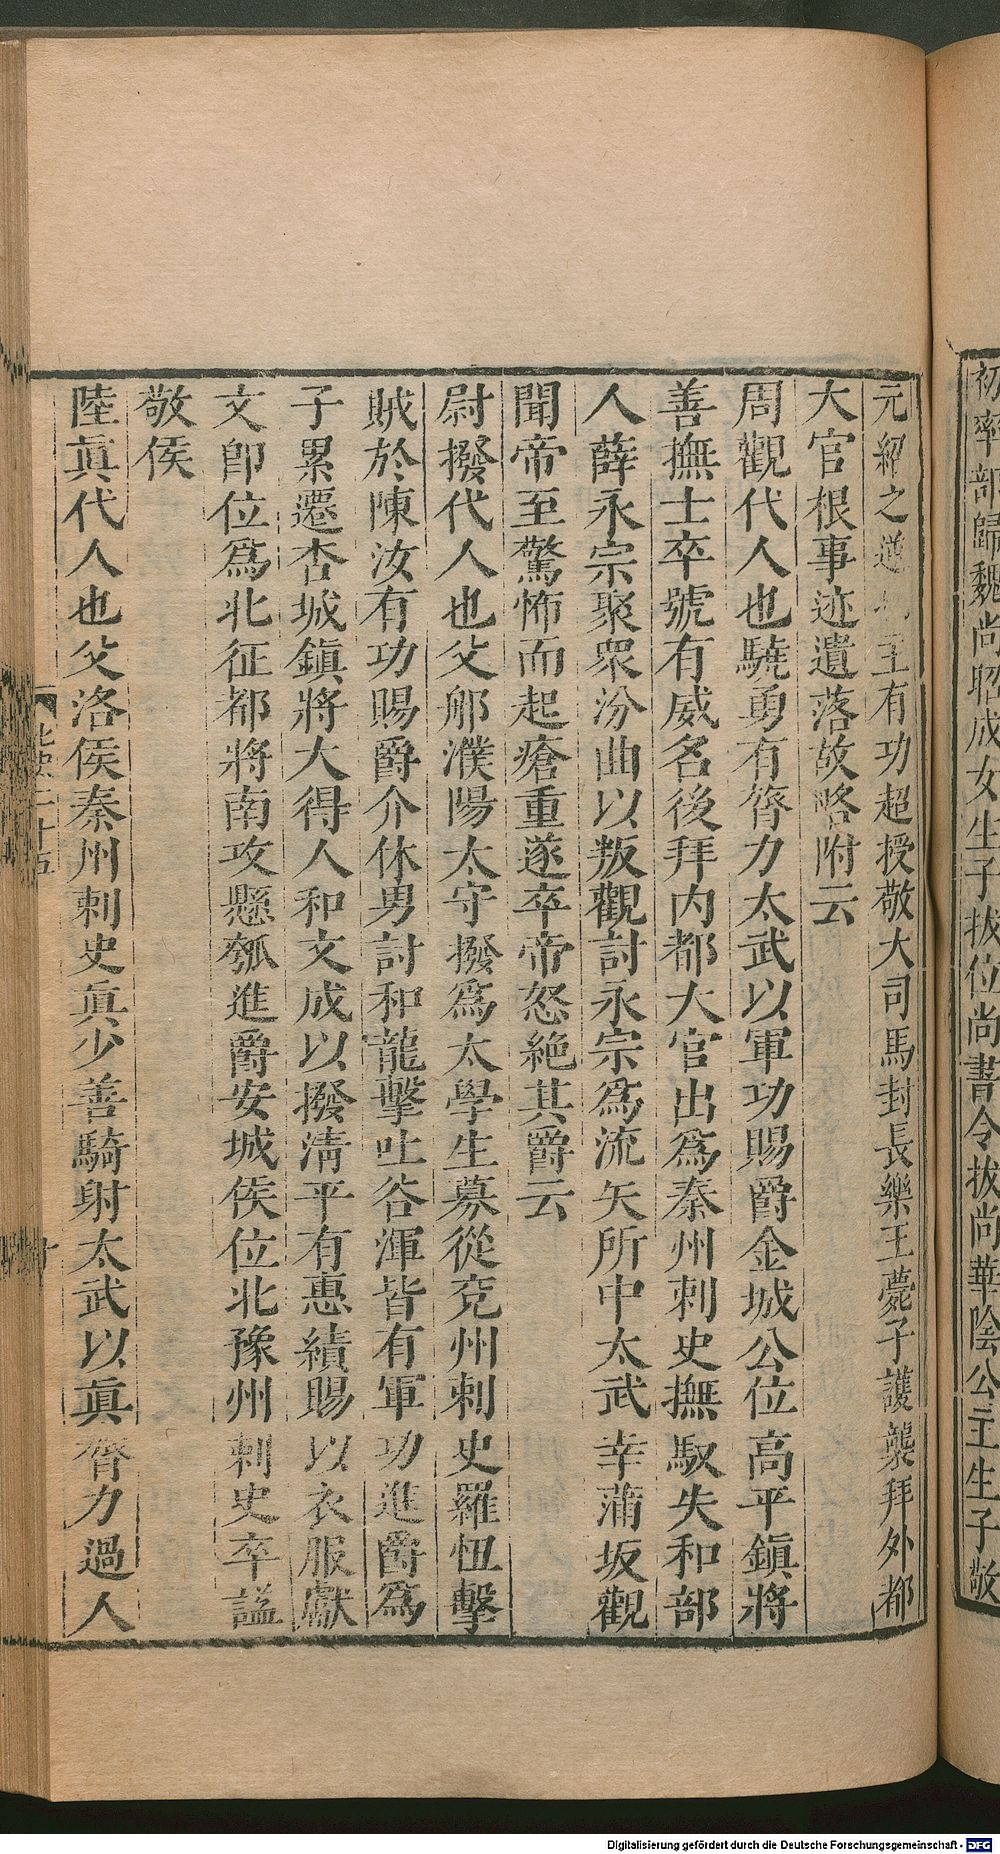 初率部歸魏尚昭成女生子拔位尚書令拔尚華陰公主生子敬
元紹之逆 主有功超授敬大司馬封長樂王薨子護襲拜外都
大官根事迹遺落故略附云
周觀代人也驍勇有膂力太武以軍功賜爵金城公位高平鎮將
善撫士卒號有威名後拜內都大官出爲秦州刺史撫馭失和部
人薛永宗聚衆汾曲以叛觀討永宗爲流矢所中太武幸蒲坂觀
聞帝至驚怖而起瘡重遂卒帝怒絶其爵云
尉撥代人也父那濮陽太守撥爲太學生募從兗州刺史羅忸擊
賊於陳汝有功賜爵介休男討和龍擊吐谷渾皆有軍功進爵爲
子累遷杏城鎮將大得人和文成以撥淸平有惠績賜以衣服獻
文卽位爲北征都將南攻懸瓠進爵安城侯位北豫州刺史卒謚
敬侯
陸眞代人也父洛侯秦州刺史眞少善騎射太武以眞膂力過人
二十五
十
Digitalisierung gefördert durch die Deutsche Forschungsgemeinschaft - DFG